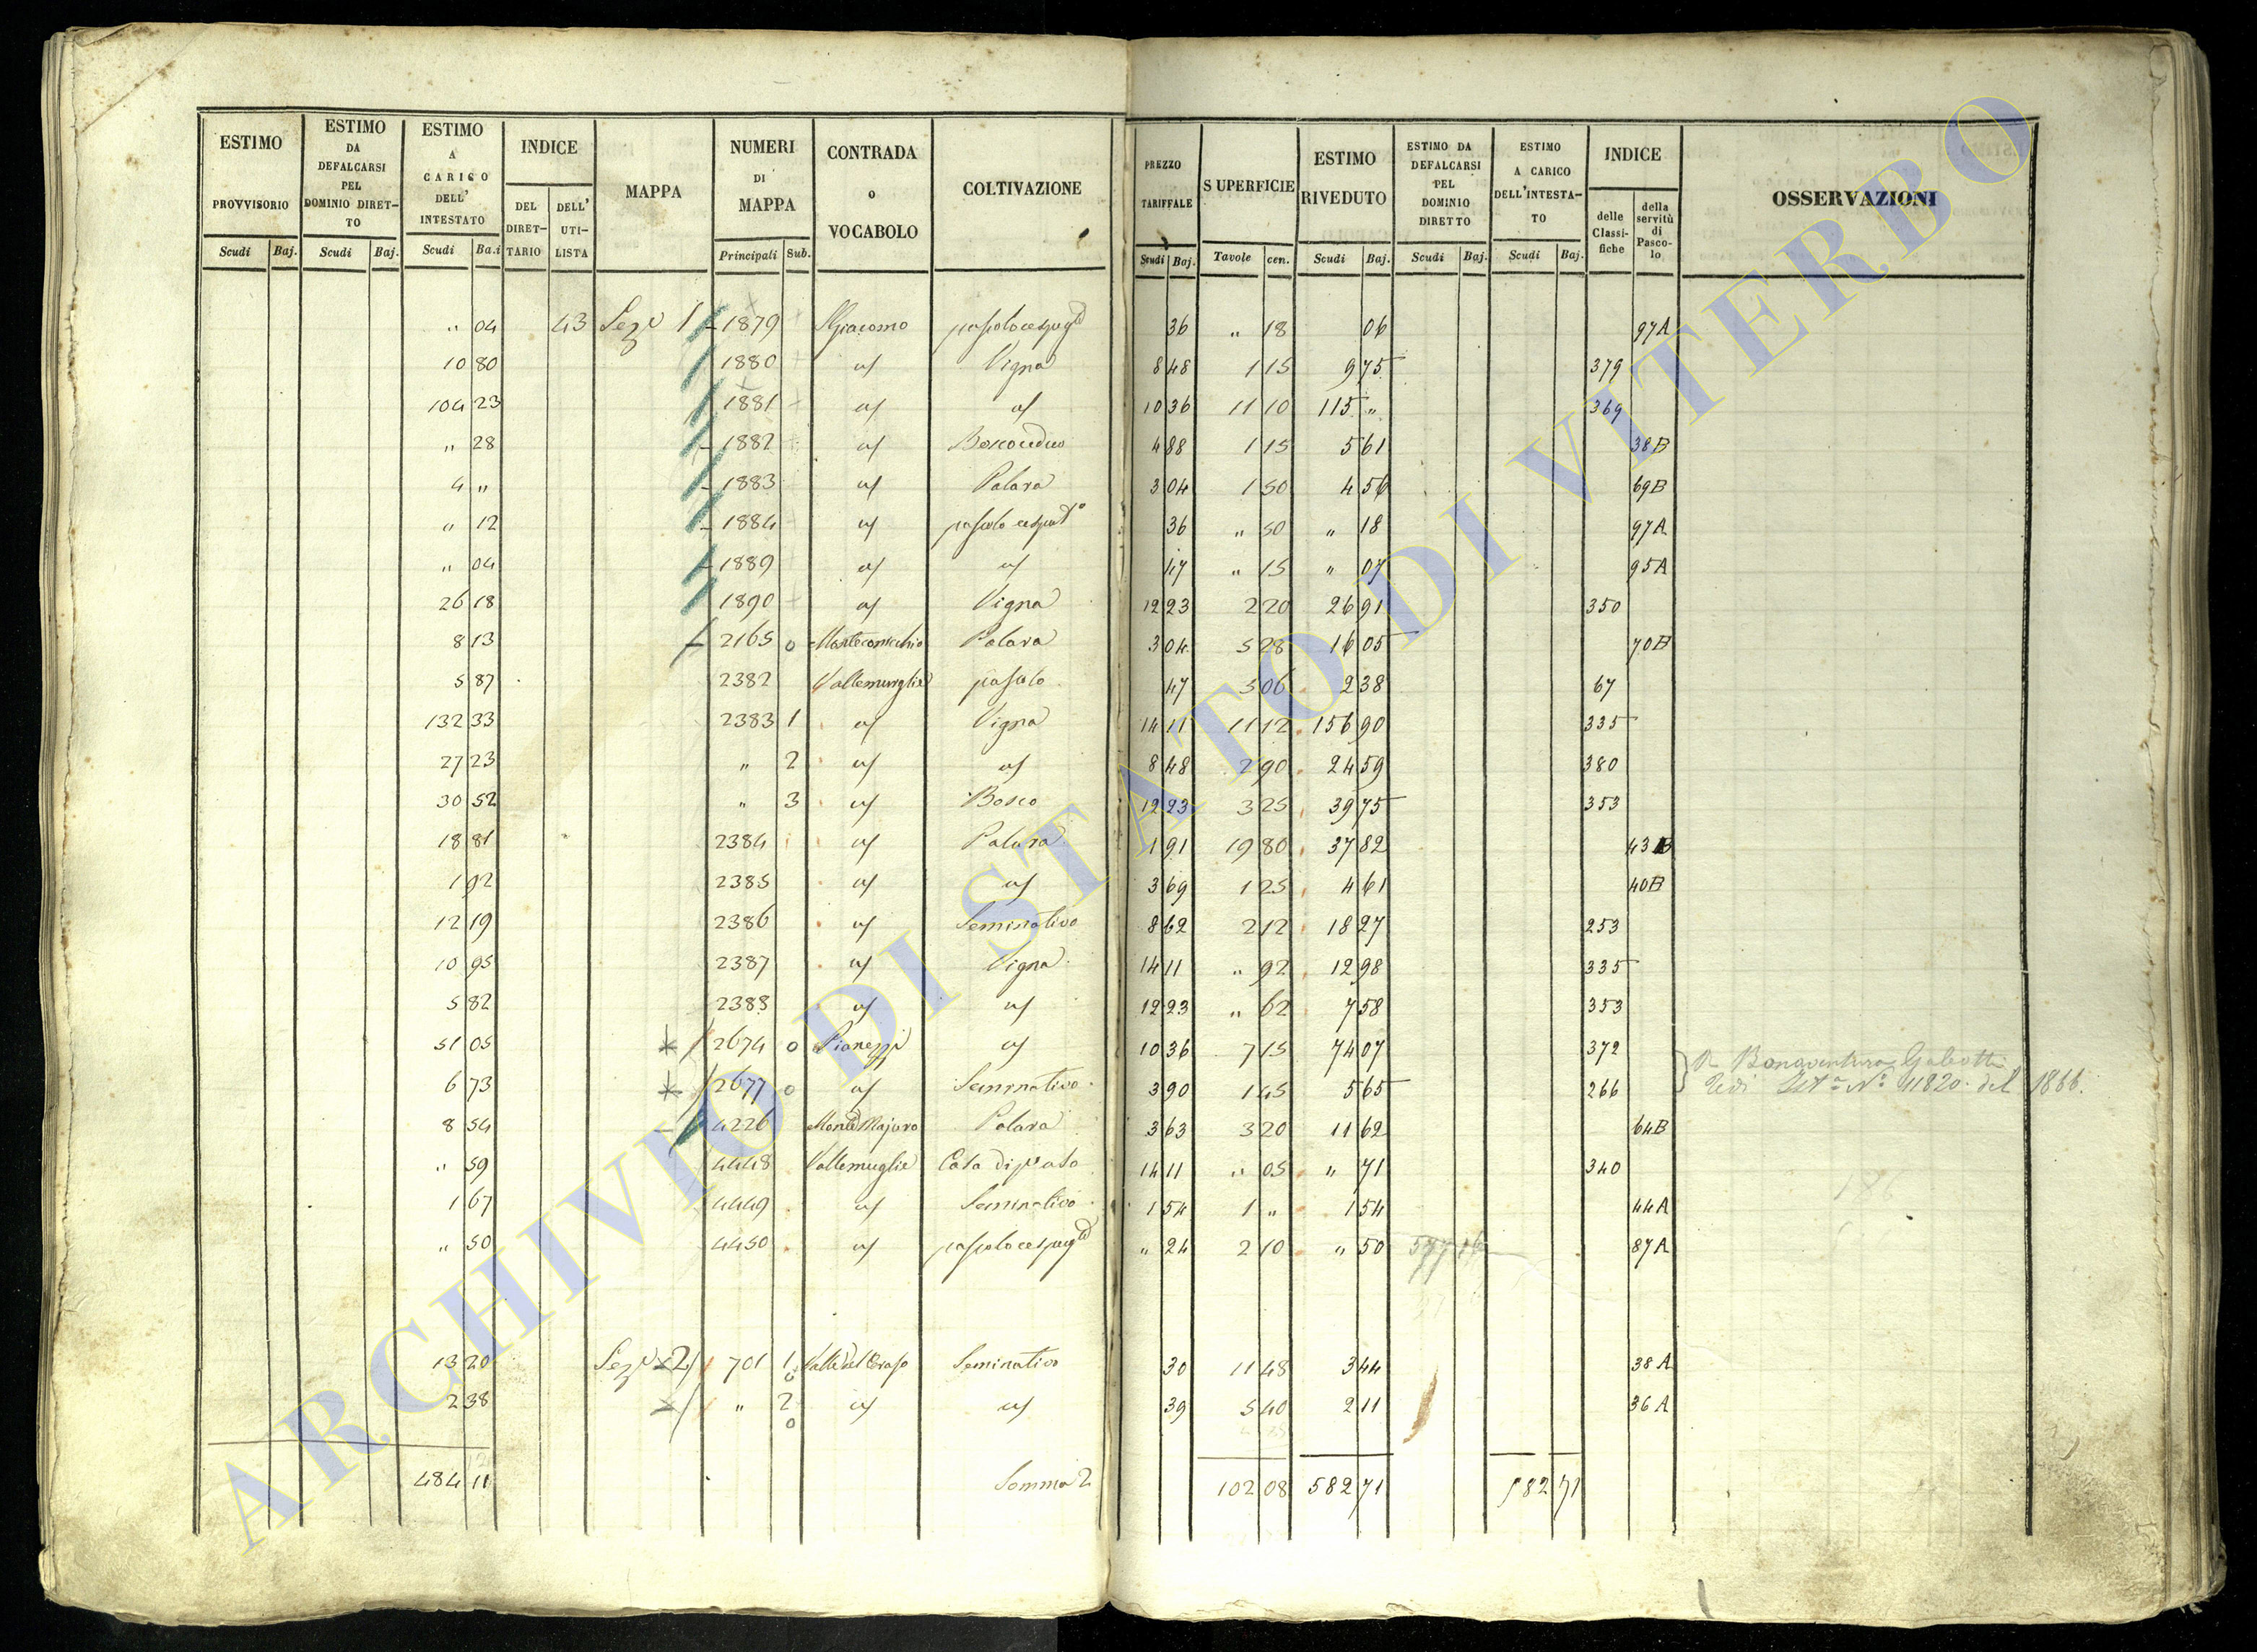 ESTIMO PROVVISORIO Scudi Baj.
ESTIMO DA DEFALCARSI PEL DOMINIO DIRETTO Scudi Baj.
ESTIMO A CARICO DELL' INTESTATO Scudi Ba.i
INDICE DEL DIRETTARIO DELL' UTILISTA
MAPPA
NUMERI DI MAPPA Principali Sub.
CONTRADA o VOCABOLO
COLTIVAZIONE
PREZZO TARIFFALE Scudi Baj.
SUPERFICIE Tavole cen.
ESTIMO RIVEDUTO Scudi Baj.
ESTIMO DA DEFALCARSI PEL DOMINIO DIRETTO Scudi Baj.
ESTIMO A CARICO DELL'INTESTATO Scudi Baj.
INDICE delle Classifiche della servitù di Pascolo
OSSERVAZIONI
„ 04 43 Sez 1 1879 S Giacomo 36 „ 18 06 97A
10 80 1880 Vigna 8 48 1 15 9 75 379
104 23 1881 10 36 11 10 115 „ 369
„ 28 1882 4 88 1 15 5 61 38B
4 „ 1883 3 04 1 50 4 56 69B
„ 12 1884 36 „ 50 „ 18 97A
„ 04 1889 47 „ 15 „ 07 95A
26 18 1890 Vigna 12 23 2 20 26 91 350
8 13 2165 o 3 04 5 28 16 05 70B
5 87 2382 pascolo 47 5 06 2 38 67
132 33 2383 1 Vigna 14 11 11 12 156 90 335
27 23 „ 2 8 48 2 90 24 59 380
30 52 „ 3 Bosco 12 23 3 25 39 75 353
18 81 2384 1 91 19 80 37 82 43B
1 92 2385 3 69 1 25 4 61 40B
12 19 2386 Seminativo 8 62 2 12 18 27 253
10 95 2387 Vigna 14 11 „ 92 12 98 335
5 82 2388 12 23 „ 62 7 58 353
51 05 2674 o 10 36 7 15 74 07 372
6 73 2677 o Seminativo 3 90 1 45 5 65 266
Bonaventura Galeotti
Vedi Ist.ª N.º 11820 del 1866.
8 54 4226 Monte Majore 3 63 3 20 11 62 64B
„ 59 4448 14 11 „ 05 „ 71 340
1 67 4449 Seminativo 1 54 1 „ 1 54 44A
„ 50 4450 „ 24 2 10 „ 50 87A
13 20 Sez 2 701 1 o Seminativo 30 11 48 3 44 38A
2 38 „ 2 o 39 5 40 2 11 36A
484 11 Somma 102 08 582 71 582 71
ARCHIVIO DI STATO DI VITERBO